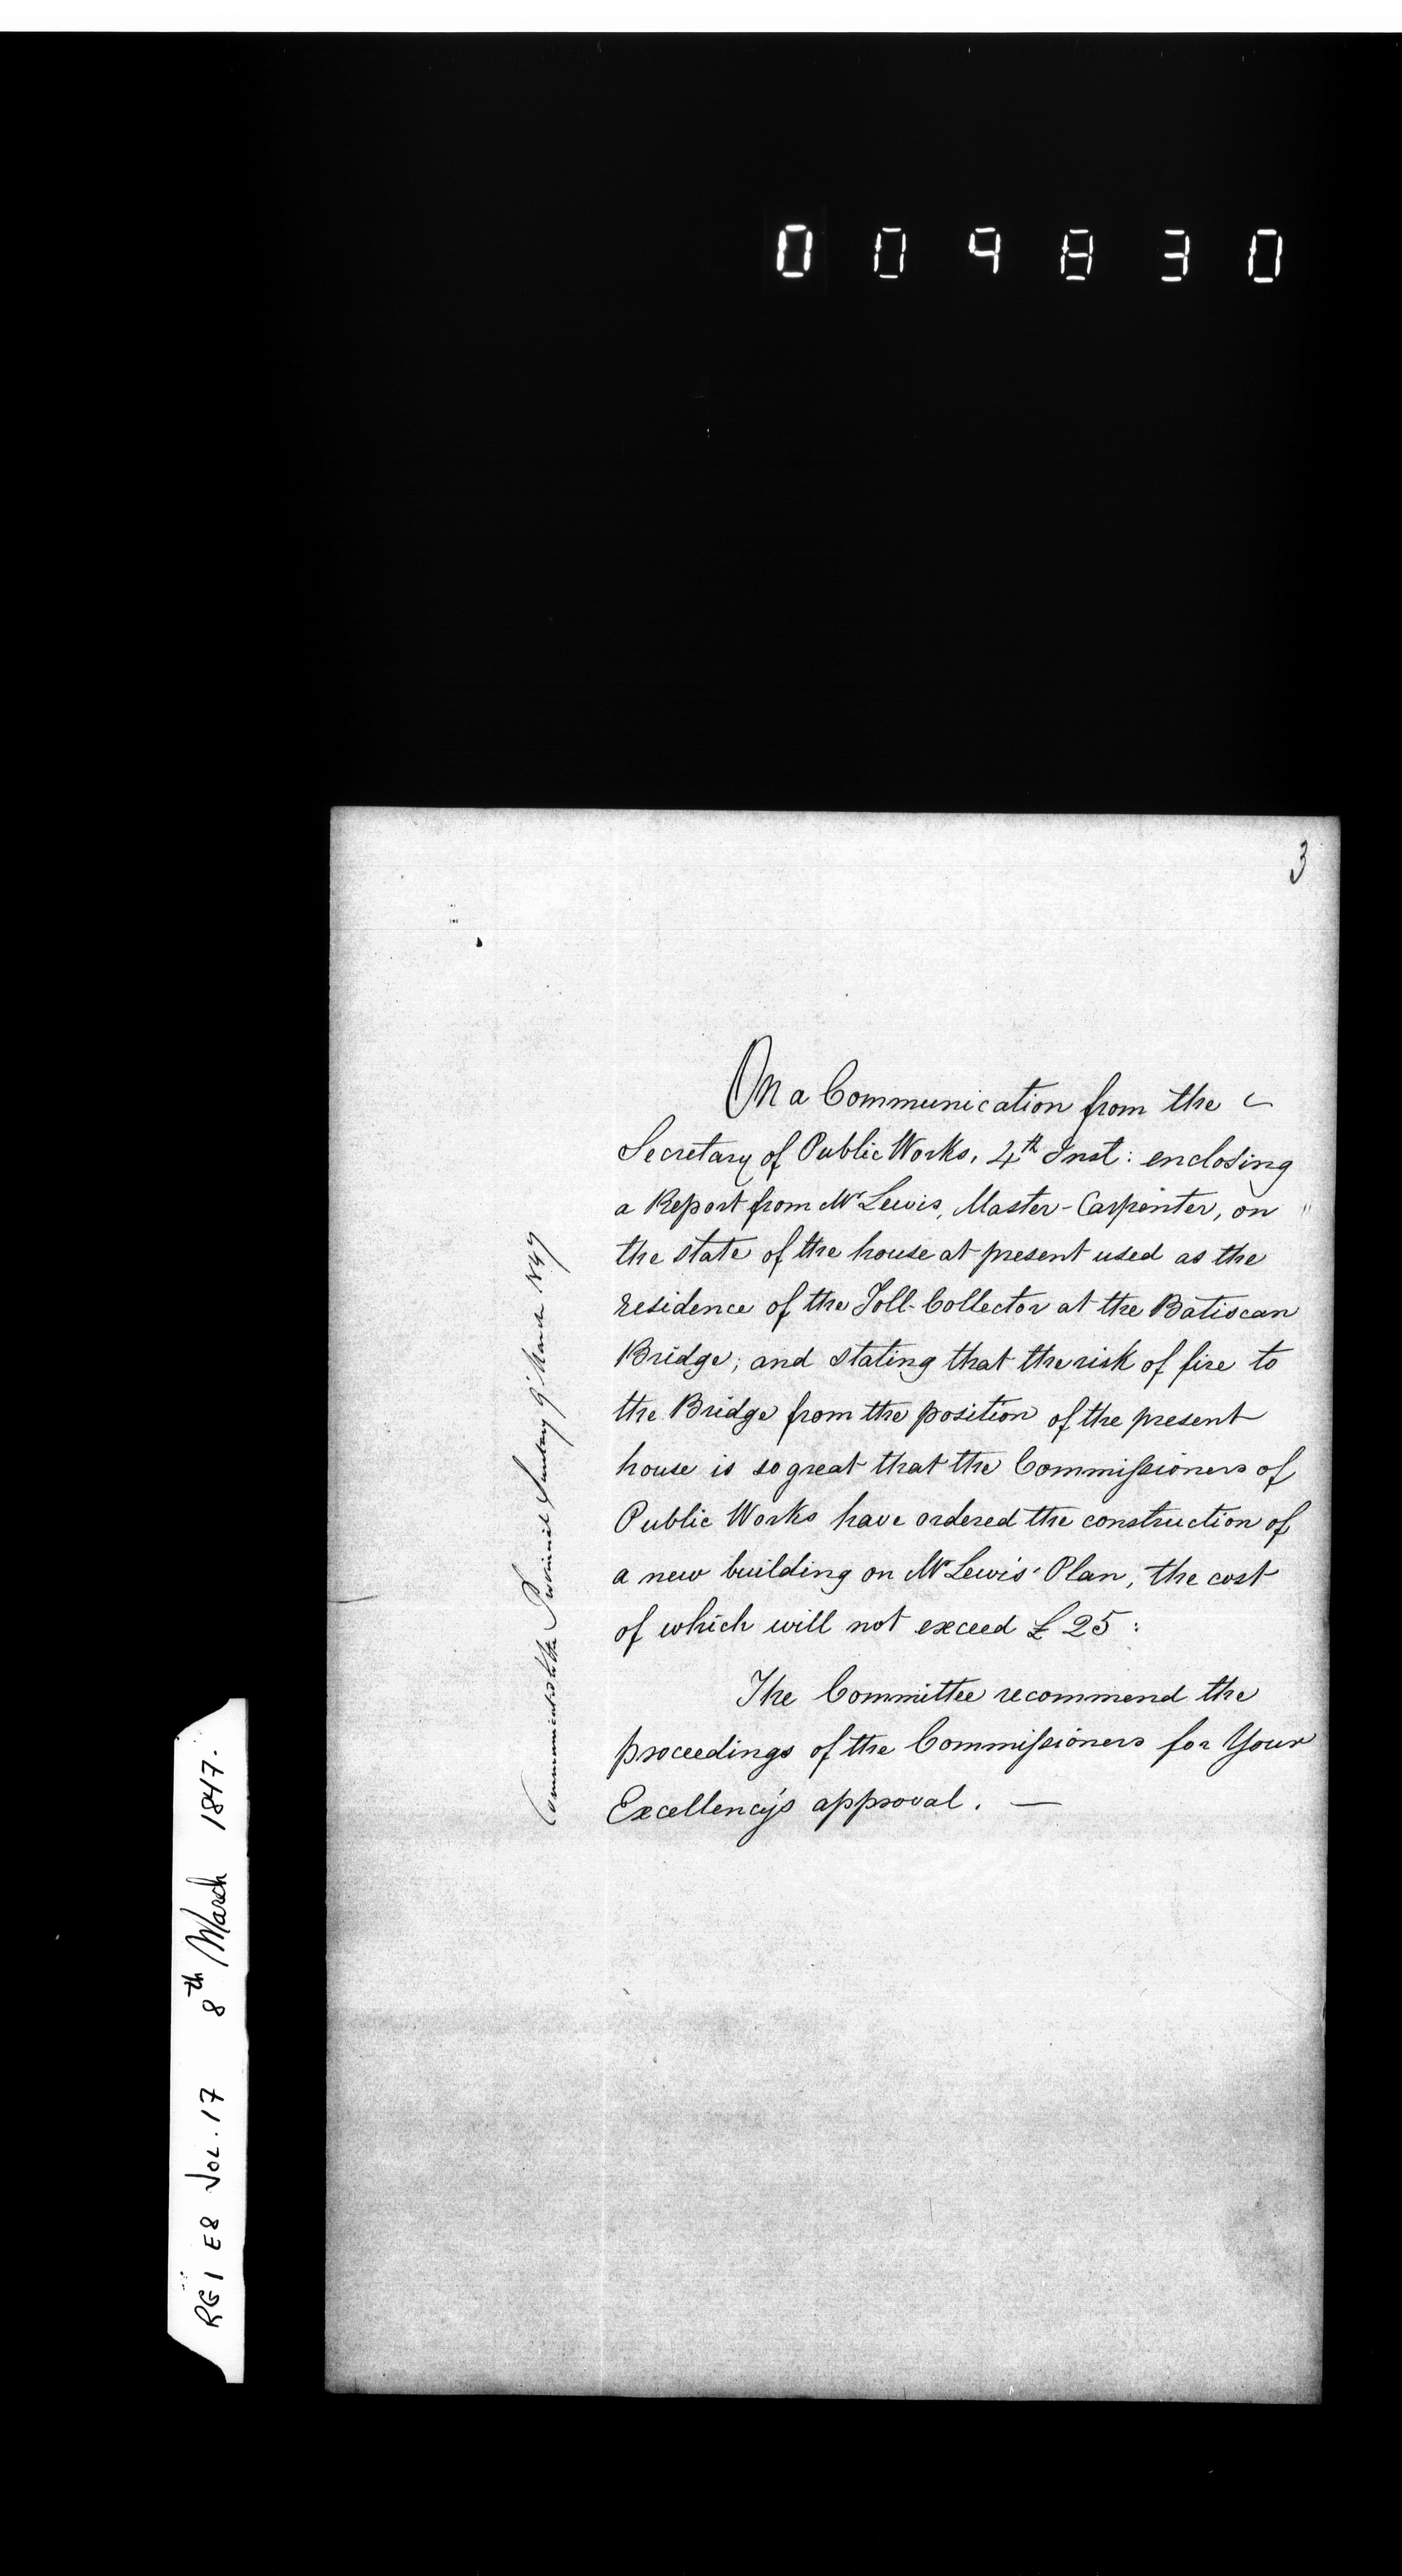 009830
3
On a Communication from the
Secretary of Public Works, 4th Inst: enclosing
a Report from Mr Lewis, Master-Carpenter, on
the state of the house at present used as the
residence of the Toll-Collector at the Batiscan
Bridge; and stating that the risk of fire to
the Bridge from the position of the present
house is so great that the Commissioners of
Public Works have ordered the construction of
a new building on Mr Lewis' Plan, the cost
of which will not exceed £25:
The Committee recommend the
proceedings of the Commissioners for Your
Excellency's approval. —
Communicated to the Provincial Secretary 9' March 1847
RG1 E8 VOL.17 8th March 1847.